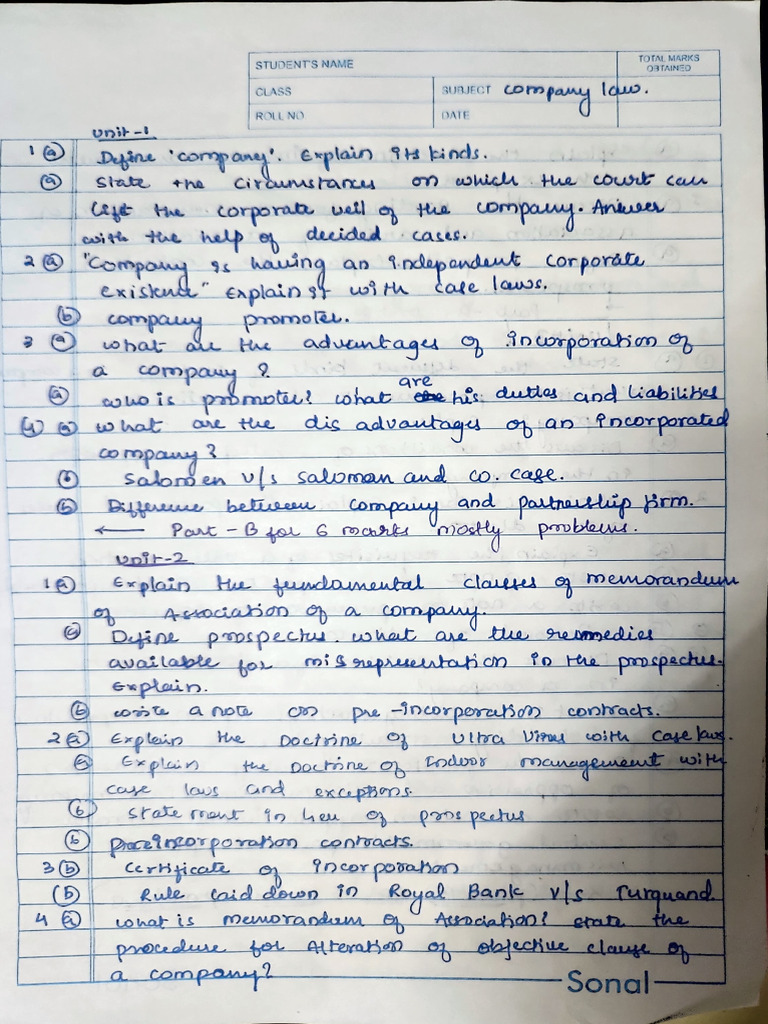 STUDENT'S NAME
TOTAL MARKS OBTAINED
CLASS
SUBJECT company law.
ROLL NO
DATE
Unit-1
1 (a) Define 'company'. Explain its kinds.
(a) State the circumstances on which the court can
lift the corporate veil of the company. Answer
with the help of decided cases.
2 (a) "Company is having an independent corporate
existence" Explain it with case laws.
(b) company promoter.
3 (a) what are the advantages of incorporation of
a company?
(a) who is promoter? what are his duties and liabilities
(4) (a) what are the dis advantages of an incorporated
company?
(b) Salomen v/s saloman and co. case.
(b) Difference between company and partnership firm.
← Part-B for 6 marks mostly problems.
Unit-2
1 (a) Explain the fundamental clauses of memorandum
of Association of a company.
(a) Define prospectus. what are the remedies
available for misrepresentation in the prospectus.
Explain.
(b) write a note on pre-incorporation contracts.
2 (a) Explain the Doctrine of Ultra Vires with case laws.
(a) Explain the Doctrine of Indoor management with
case laws and exceptions.
(b) statement in lieu of prospectus
(b) incorporation contracts.
3 (b) Certificate of incorporation
(b) Rule laid down in Royal Bank v/s Turquand.
4 (a) what is memorandum of Association? state the
procedure for Alteration of objective clause of
a company?
Sonal